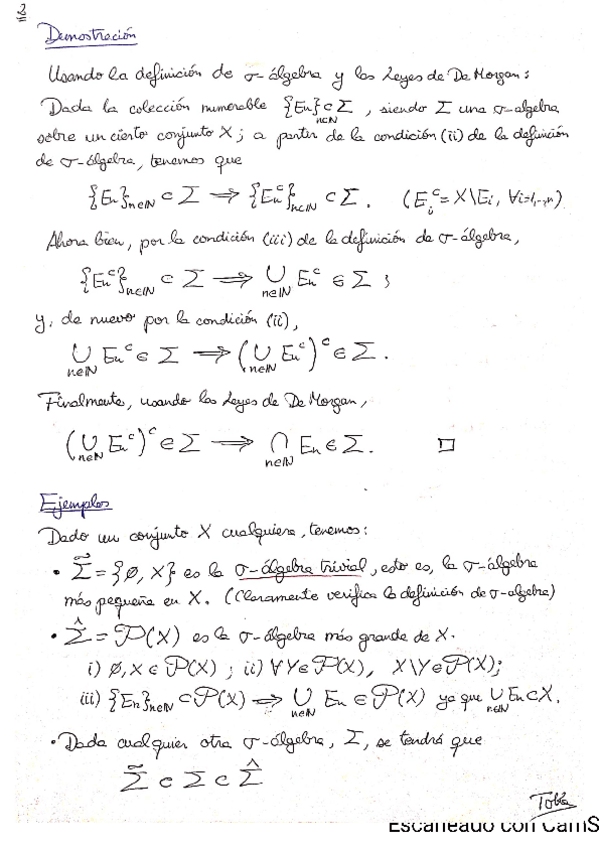 2
Demostración
Usando la definición de σ-álgebra y las Leyes de De Morgan:
Dada la colección numerable {En}n∈ℕ ⊂ Σ, siendo Σ una σ-algebra
sobre un cierto conjunto X; a partir de la condición (ii) de la definición
de σ-álgebra, tenemos que
{En}n∈ℕ ⊂ Σ ⟹ {Enᶜ}n∈ℕ ⊂ Σ. (Eiᶜ = X\Ei, ∀i=1,..,n)
Ahora bien, por la condición (iii) de la definición de σ-álgebra,
{Enᶜ}n∈ℕ ⊂ Σ ⟹ ∪n∈ℕ Enᶜ ∈ Σ ;
y, de nuevo por la condición (ii),
∪n∈ℕ Enᶜ ∈ Σ ⟹ (∪n∈ℕ Enᶜ)ᶜ ∈ Σ.
Finalmente, usando las Leyes de De Morgan,
(∪n∈ℕ Enᶜ)ᶜ ∈ Σ ⟹ ∩n∈ℕ En ∈ Σ. □
Ejemplos
Dado un conjunto X cualquiera, tenemos:
• Σ̃ = {∅, X} es la σ-álgebra trivial, esto es, la σ-álgebra
más pequeña en X. (Claramente verifica la definición de σ-algebra)
• Σ̂ = P(X) es la σ-álgebra más grande de X.
i) ∅, X ∈ P(X) ; ii) ∀Y ∈ P(X), X\Y ∈ P(X);
iii) {En}n∈ℕ ⊂ P(X) ⟹ ∪n∈ℕ En ∈ P(X) ya que ∪n∈ℕ En ⊂ X.
• Dada cualquier otra σ-álgebra, Σ, se tendrá que
Σ̃ ⊂ Σ ⊂ Σ̂
Escaneado con CamS